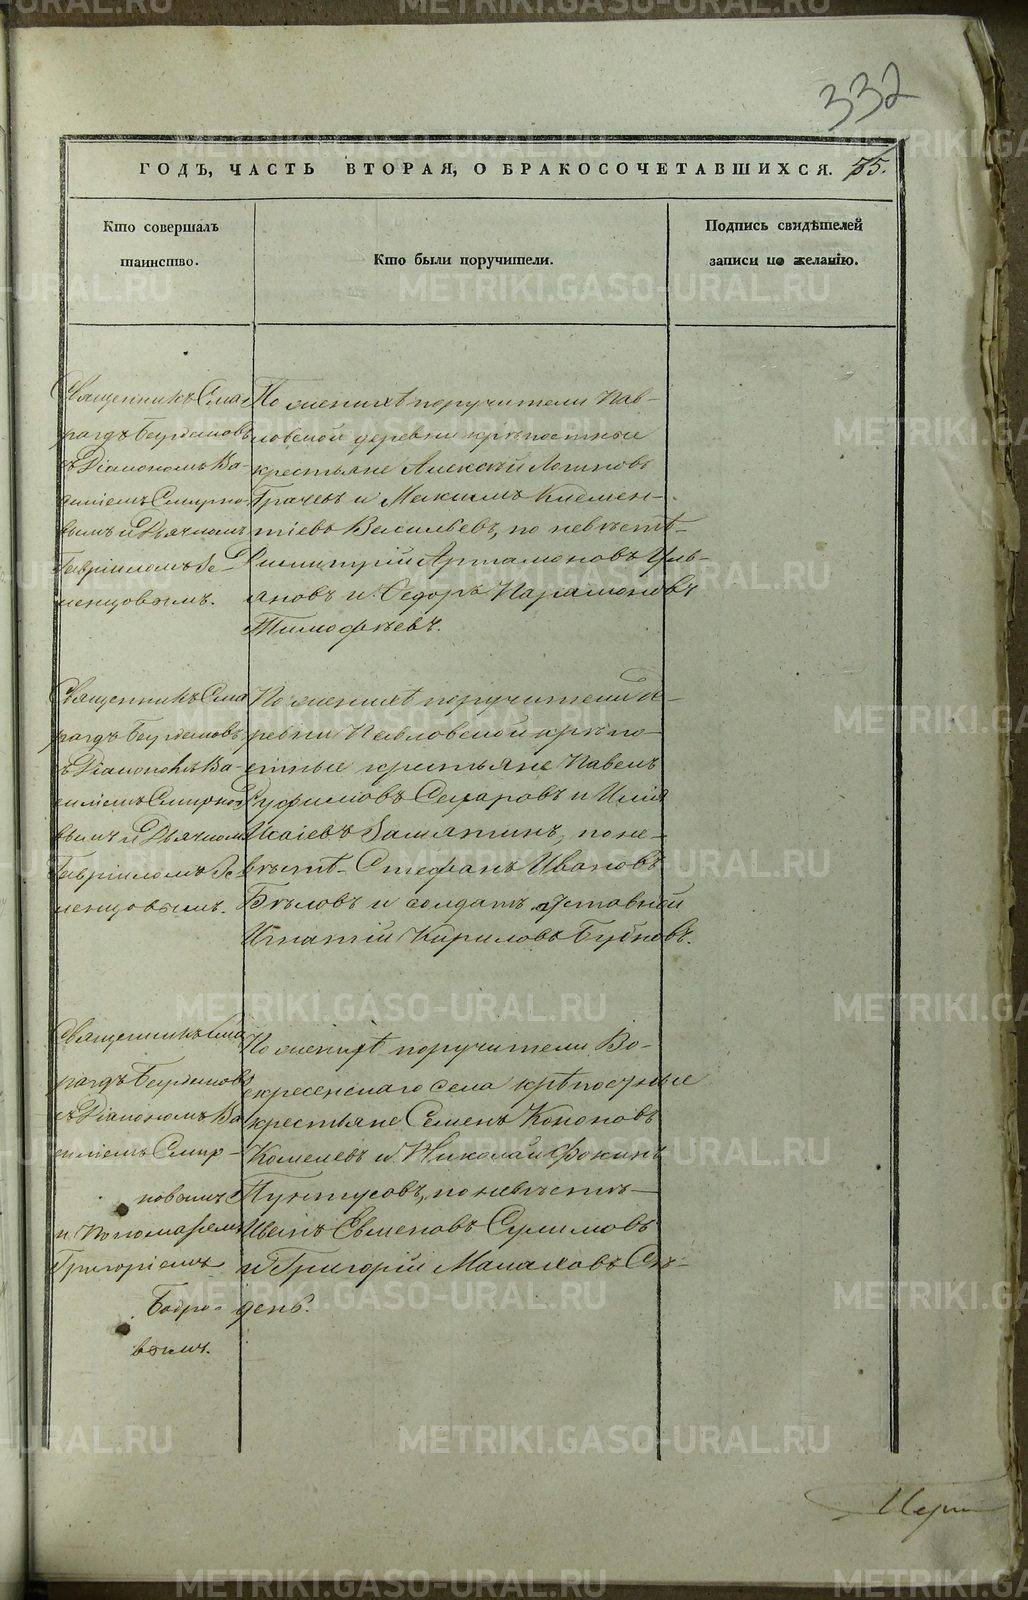 332
ГОДЪ, ЧАСТЬ ВТОРАЯ, О БРАКОСОЧЕТАВШИХСЯ. 55.
Кто совершалъ
таинство.
Кто были поручители.
Подпись свидѣтелей
записи по желанію.
Священникъ Сма-
рагдъ Бурдаковъ
съ Діакономъ Ва-
силіемъ Смирно-
вымъ и Дьячкомъ
Гавріиломъ
По женихѣ поручители Пав-
ловской деревни крѣпостные
крестьяне Алексѣй Логиновъ
Грачевъ и Максимъ Климен-
тіевъ Васильевъ, по невѣстѣ-
Димитрій Артамоновъ Улья-
новъ и Ѳедоръ Парамоновъ
Тимофѣевъ.
Священникъ Сма
рагдъ
съ Діакономъ Ва-
силіемъ Смирно
вымъ и Дьячкомъ
Гавріиломъ
По женихѣ поручители де-
ревни Павловской крѣпо-
стные крестьяне Павелъ
Руфимовъ и Илія
Исаіевъ Замятинъ, по не-
вѣстѣ- Стефанъ Ивановъ
Бѣловъ и солдатъ отставной
Игнатій Кириловъ
Священникъ Сма
рагдъ
съ Діакономъ Ва
силіемъ Смир-
новымъ
и Пономаремъ
Григоріемъ
Бобро-
вымъ.
По женихѣ поручители Во-
скресенскаго села крѣпостные
крестьяне Семенъ Кононовъ
Комелевъ и Николай Фокинъ
по невѣстѣ-
Иванъ Евменовъ Сулимовъ
и Григорій Малаховъ Сѣ-
день.
METRIKI.GASO-URAL.RU